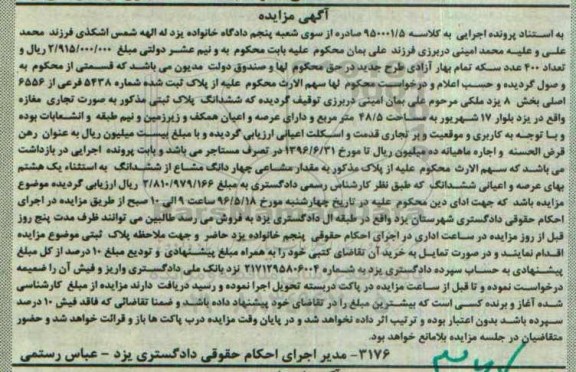 آگهی مزایده
به استناد پرونده اجرایی به کلاسه ۹۵۰۰۰۱/۵ صادره از سوی شعبه پنجم دادگاه خانواده یزد له الهه شمس اشکذی فرزند محمد
علی و علیه محمد امینی دربرزی فرزند علی بمان محکوم علیه بابت محکوم به و نیم عشر دولتی مبلغ ۲/۹۱۵/۰۰۰/۰۰۰ ریال و
تعداد ۴۰۰ عدد سکه تمام بهار آزادی طرح جدید در حق محکوم لها و صندوق دولت مدیون می باشد که قسمتی از محکوم به
و صول گردیده و حسب اعلام و درخواست محکوم لها سهم الارث محکوم علیه از پلاک ثبت شده شماره ۵۴۳۸ فرعی از ۶۵۵۶
اصلی بخش ۸ یزد ملکی مرحوم علی بمان امینی دربرزی توقیف گردیده که ششدانگ پلاک ثبتی مذکور به صورت تجاری مغازه
واقع در یزد بلوار ۱۷ شهریور به مساحت ۴۸/۵ متر مربع و دارای عرصه و اعیان همکف و زیرزمین و نیم طبقه و انشعابات بوده
و با توجه به کاربری و موقعیت و اثر تجاری قدمت و اسکلت اعیانی ارزیابی گردیده و با مبلغ بیست میلیون ریال به عنوان رهن
قرض الحسنه و اجاره ماهیانه ده میلیون ریال تا مورخ ۱۳۹۶/۶/۳۱ در تصرف مستاجر می باشد و بابت پرونده اجرایی در بازداشت
می باشد که سهم الارث محکوم علیه از پلاک مذکور به مقدار مشاعی چهار دانگ مشاع از ششدانگ به استثناء یک هشتم
بهای عرصه و اعیانی ششدانگ که طبق نظر کارشناس رسمی دادگستری به مبلغ ۳/۸۱۰/۹۷۹/۱۶۶ ریال ارزیابی گردیده موضوع
مزایده باشد که جهت ادای دین محکوم علیه در تاریخ چهارشنبه مورخ ۹۶/۵/۱۸ ساعت ۹ الی ۱۰ صبح از طریق مزایده در اجرای
احکام حقوقی دادگستری شهرستان یزد واقع در طبقه ال دادگستری یزد به فروش می رسد. طالبین می توانند ظرف مدت پنج روز
قبل از روز مزایده در ساعت اداری در اجرای احکام حقوقی پنجم خانواده یزد حاضر و جهت ملاحظه پلاک ثبتی موضوع مزایده
اقدام نمایند و در صورت تمایل به خرید آن تقاضای کتبی خود را به همراه مبلغ پیشنهادی و تودیع مبلغ ۱۰ درصد از کل مبلغ
پیشنهادی به حساب سپرده دادگستری یزد به شماره ۲۱۷۱۲۹۵۸۰۶۰۰۴ نزد بانک ملی دادگستری واریز و فیش آن را ضمیمه
درخواست نموده و تا قبل از ساعت مزایده در پاکت دربسته تحویل اجرا نموده و رسید دریافت دارند مزایده از مبلغ کارشناسی
شده آغاز و برنده کسی است که بیشترین مبلغ را در تقاضای خود پیشنهاد داده باشد و ضمنا تقاضائی که فاقد فیش ۱۰ درصد
سپرده باشد بدون اعتبار بوده و ترتیب اثر داده نخواهد شد و در پایان وقت مزایده درب پاکت ها باز و قرائت خواهد شد و حضور
متقاضیان در جلسه مزایده بلامانع خواهد بود.
۳۱۷۶- مدیر اجرای احکام حقوقی دادگستری یزد - عباس رستمی